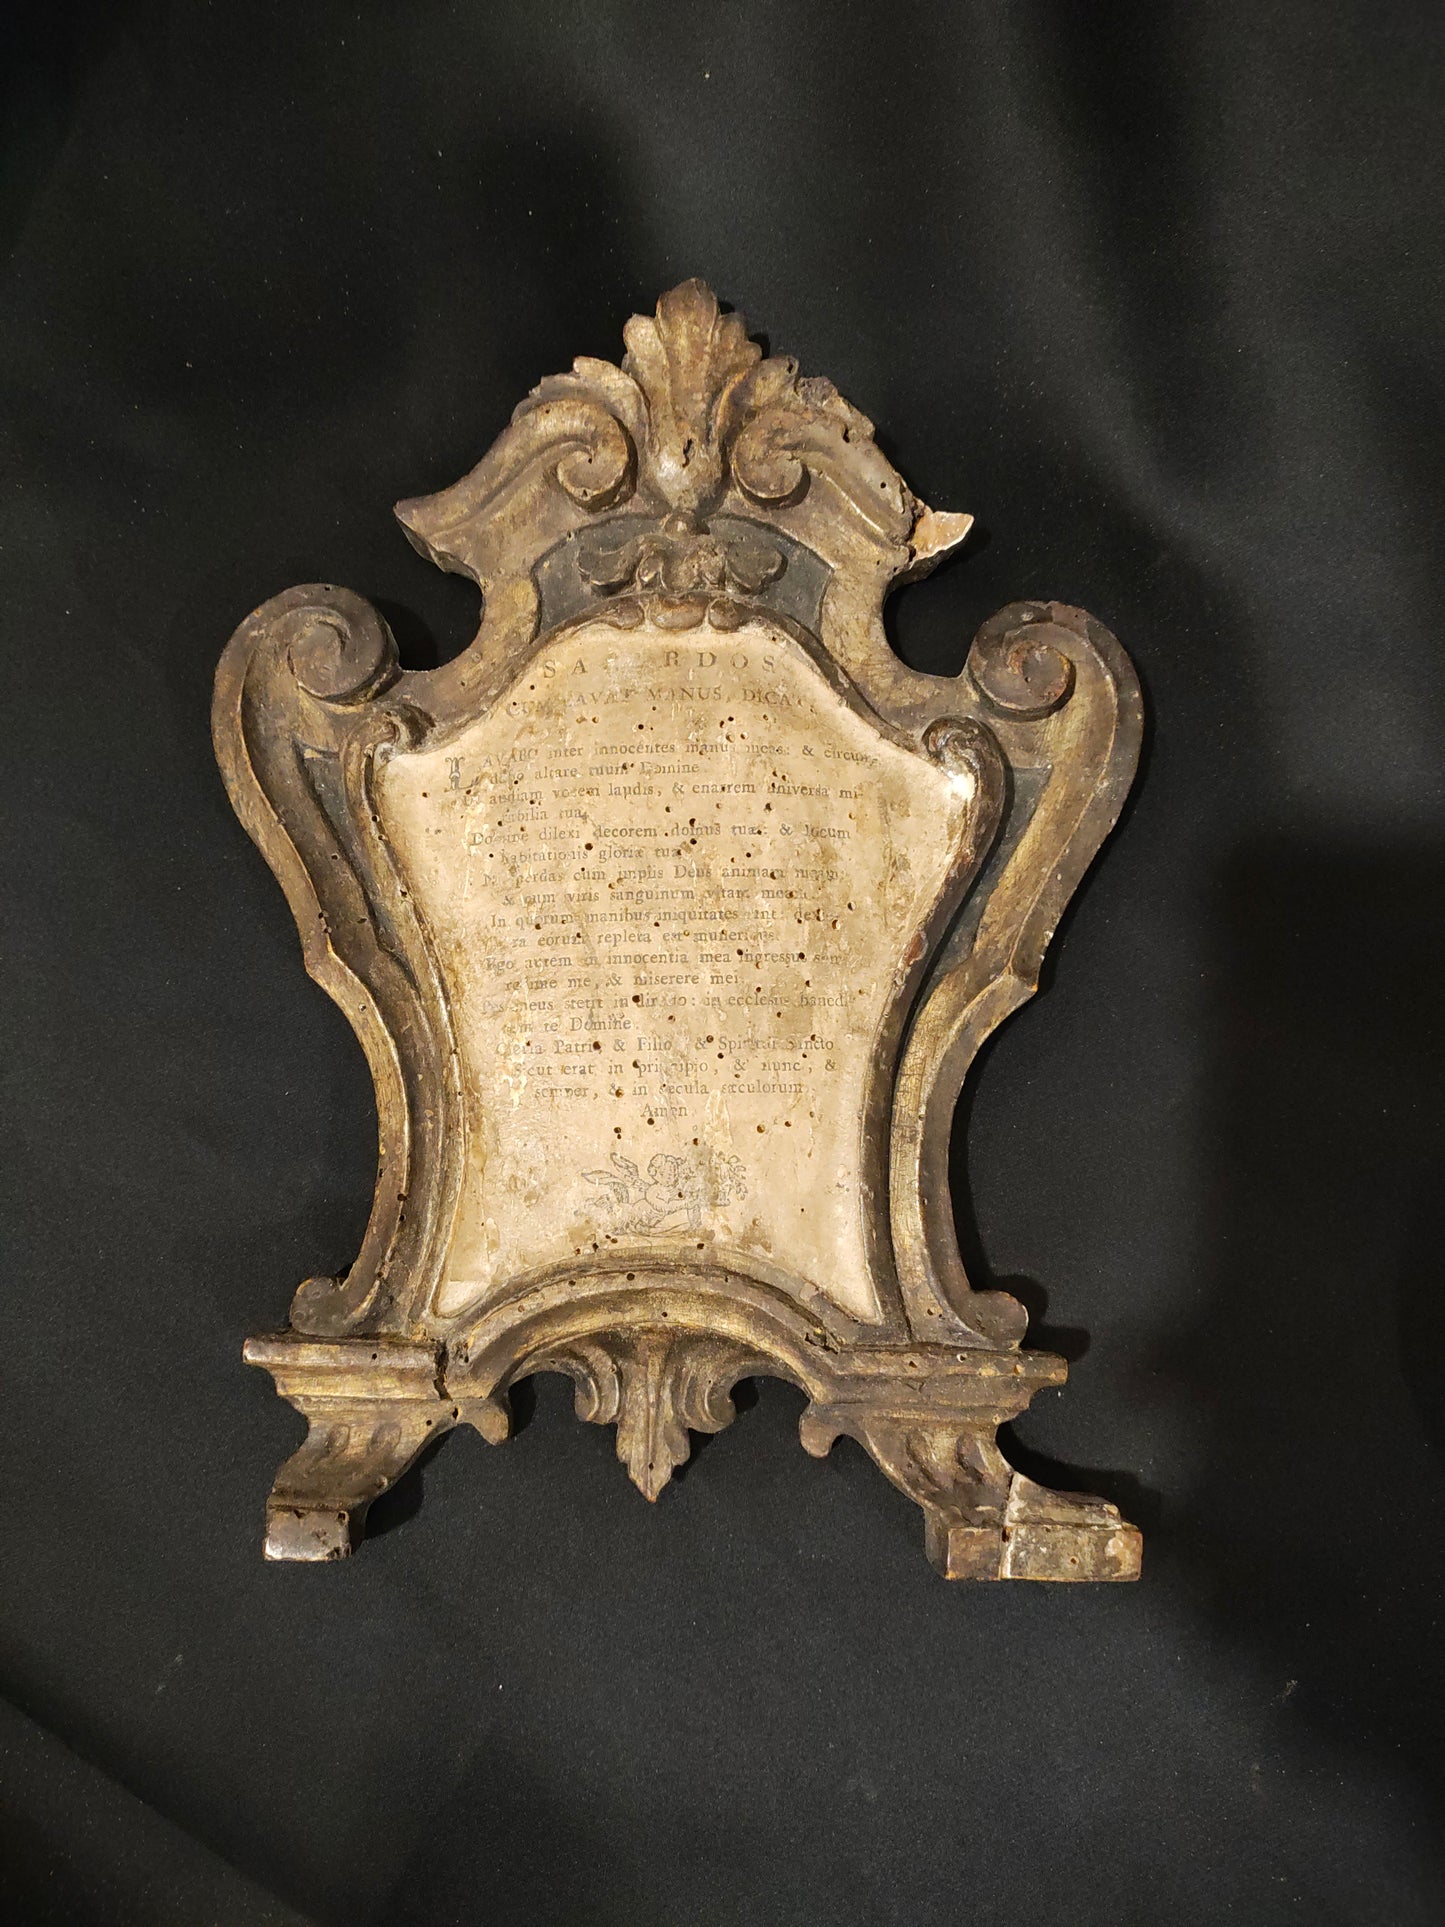 SACERDOS
CUM LAVAT MANUS, DICAT
LAVABO inter innocentes manus meas: & circum-
dabo altare tuum Domine.
Ut audiam vocem laudis, & enarrem universa mi-
rabilia tua.
Domine dilexi decorem domus tuæ: & locum
habitationis gloriæ tuæ
Ne perdas cum impiis Deus animam meam:
& cum viris sanguinum vitam meam.
In quorum manibus iniquitates sunt: dexte-
ra eorum repleta est muneribus.
Ego autem in innocentia mea ingressus sum
redime me, & miserere mei.
Pes meus stetit in directo: in ecclesiis bened-
cam te Domine.
Gloria Patri, & Filio, & Spiritui Sancto
Sicut erat in principio, & nunc, &
semper, & in secula sæculorum.
Amen